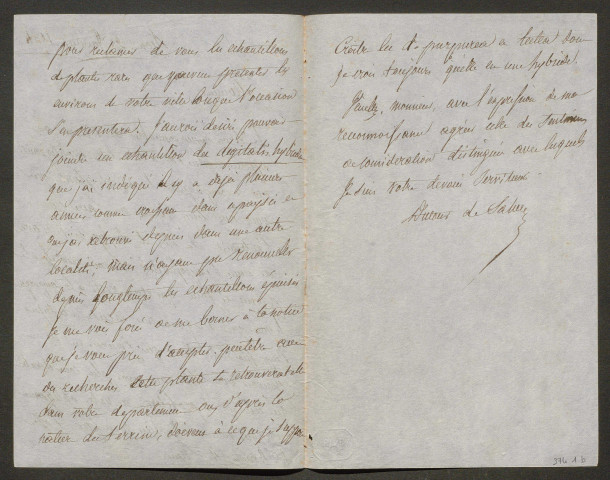 pour reclamer de vous les echantillons
de plantes rares que peuvent presenter les
environs de votre ville lorsque l'occasion
s'en presentera. J'aurois desiré pouvoir
joindre un echantillon du digitalis hybrida
que j'ai indiqué il y a deja plusieurs
années comme croissant dans
que j'ai retrouvé depuis dans une autre
localité, mais n'ayant pu renouveller
depuis longtemps les echantillons epuisés
je me vois forcé de me borner à la notice
que je vous prie d'accepter. peutetre avec
des recherches cette plante se retrouverait elle
dans votre departement ou, d'après la
nature du terrain, doivent à ce que je suppose
croitre les d. purpurea et lutea dont
je crois toujours qu'elle est une hybride.
Veuillez, monsieur, avec l'expression de ma
reconnoissance agréer celle des sentimens
de consideration distinguée avec lesquels
je suis votre devoué serviteur
Dutour de Salvert
394 1 b